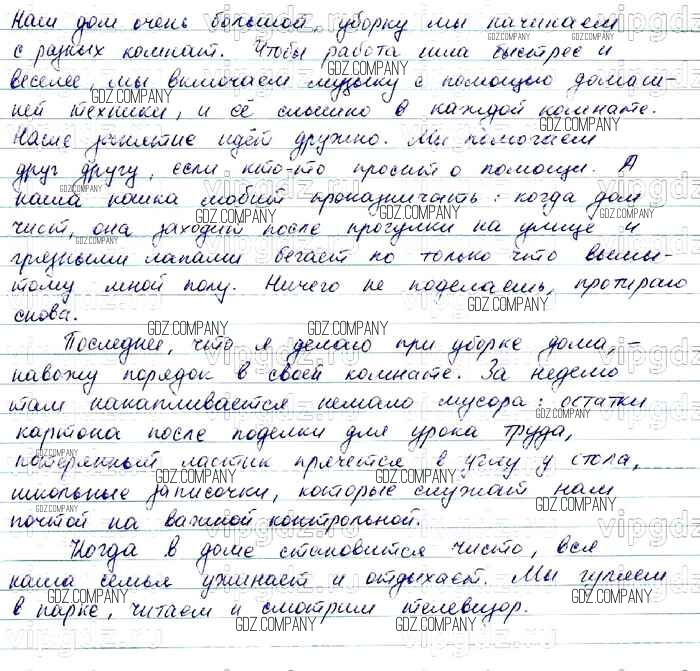 Наш дом очень большой, уборку мы начинаем
с разных комнат. Чтобы работа шла быстрее и
веселее, мы включаем музыку с помощью домаш-
ней техники, и её слышно в каждой комнате.
Наше занятие идёт дружно. Мы помогаем
друг другу, если кто-то просит о помощи. А
наша кошка любит проказничать: когда дом
чист, она заходит после прогулки на улице и
грязными лапами бегает по только что вымы-
тому мной полу. Ничего не поделаешь, протираю
снова.
Последнее, что я делаю при уборке дома, –
навожу порядок в своей комнате. За неделю
там накапливается немало мусора: остатки
картона после поделки для урока труда,
потерянный ластик прячется в углу у стола,
школьные записочки, которые служат нам
почтой на важной контрольной.
Когда в доме становится чисто, вся
наша семья ужинает и отдыхает. Мы гуляем
в парке, читаем и смотрим телевизор.
GDZ.COMPANY
vipgdz.ru